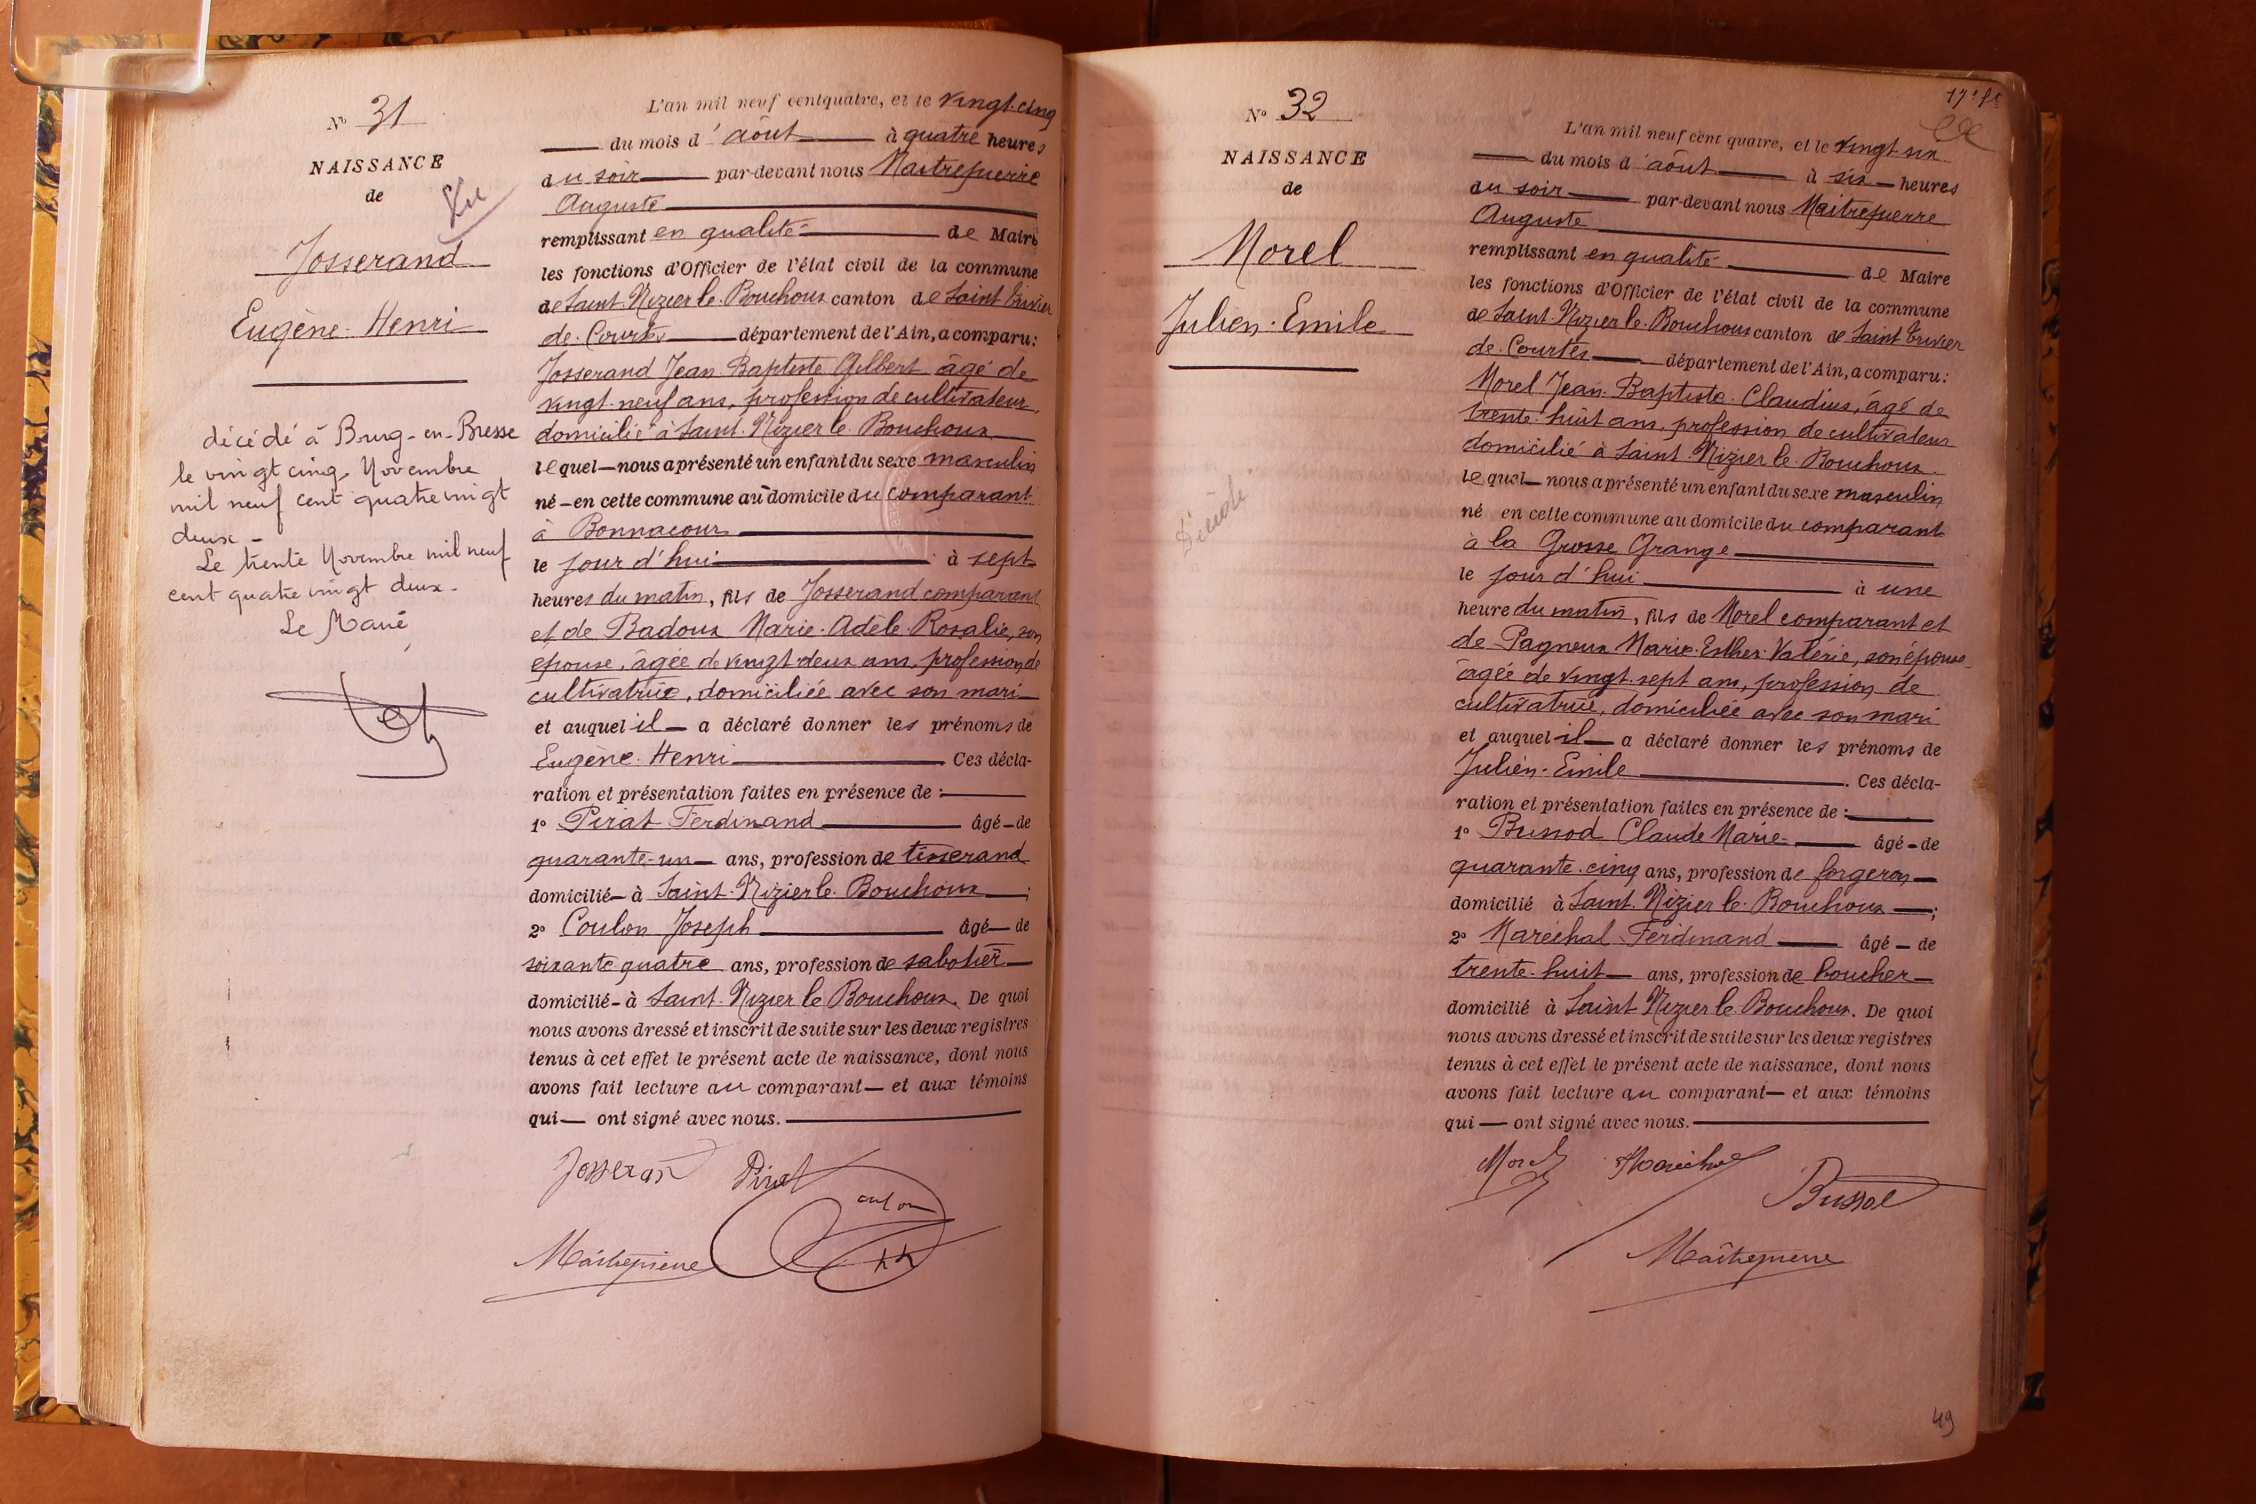 Nº 31
NAISSANCE
de
Vu
Josserand
Eugène-Henri
décédé à Bourg-en-Bresse
le vingt cinq Novembre
mil neuf cent quatre vingt
deux -
Le trente Novembre mil neuf
cent quatre vingt deux.
Le Maire
L'an mil neuf cent quatre, et le vingt-cinq
du mois d'août à quatre heures
du soir par-devant nous Maitrepierre
Auguste
remplissant en qualité de Maire
les fonctions d'Officier de l'état civil de la commune
de Saint-Nizier le Bouchoux canton de Saint Trivier
de Courtes département de l'Ain, a comparu:
Josserand Jean Baptiste Gilbert âgé de
vingt-neuf ans, profession de cultivateur,
domicilié à Saint-Nizier le Bouchoux
lequel nous a présenté un enfant du sexe masculin
né en cette commune au domicile du comparant
à Bonnacour
le jour d'hui à sept
heures du matin, fils de Josserand comparant
et de Badoux Marie-Adèle-Rosalie, son
épouse, âgée de vingt deux ans, profession de
cultivatrice, domiciliée avec son mari
et auquel il a déclaré donner les prénoms de
Eugène-Henri Ces décla-
ration et présentation faites en présence de :
1º Pirat Ferdinand âgé de
quarante-un ans, profession de tisserand
domicilié à Saint-Nizier le Bouchoux ;
2º Coulon Joseph âgé de
soixante quatre ans, profession de sabotier
domicilié à Saint-Nizier le Bouchoux. De quoi
nous avons dressé et inscrit de suite sur les deux registres
tenus à cet effet le présent acte de naissance, dont nous
avons fait lecture au comparant et aux témoins
qui ont signé avec nous.
Josseran Pirat
Coulon
Maitrepierre
Nº 32
NAISSANCE
de
Morel
Julien-Emile
L'an mil neuf cent quatre, et le vingt six
du mois d'août à six heures
du soir par-devant nous Maitrepierre
Auguste
remplissant en qualité de Maire
les fonctions d'Officier de l'état civil de la commune
de Saint-Nizier le Bouchoux canton de Saint Trivier
de Courtes département de l'Ain, a comparu:
Morel Jean-Baptiste-Claudius, âgé de
trente-huit ans, profession de cultivateur
domicilié à Saint-Nizier le Bouchoux.
lequel nous a présenté un enfant du sexe masculin
né en cette commune au domicile du comparant
à la Grosse Grange
le jour d'hui à une
heure du matin, fils de Morel comparant et
de Pagneux Marie-Esther-Valérie, son épouse
âgée de vingt-sept ans, profession de
cultivatrice, domiciliée avec son mari
et auquel il a déclaré donner les prénoms de
Julien-Emile. Ces décla-
ration et présentation faites en présence de :
1º Bussod Claude Marie âgé de
quarante-cinq ans, profession de forgeron
domicilié à Saint-Nizier le Bouchoux ;
2º Maréchal Ferdinand âgé de
trente-huit ans, profession de boucher
domicilié à Saint Nizier le Bouchoux. De quoi
nous avons dressé et inscrit de suite sur les deux registres
tenus à cet effet le présent acte de naissance, dont nous
avons fait lecture au comparant et aux témoins
qui ont signé avec nous.
Morel Maréchal
Bussod
Maitrepierre
49